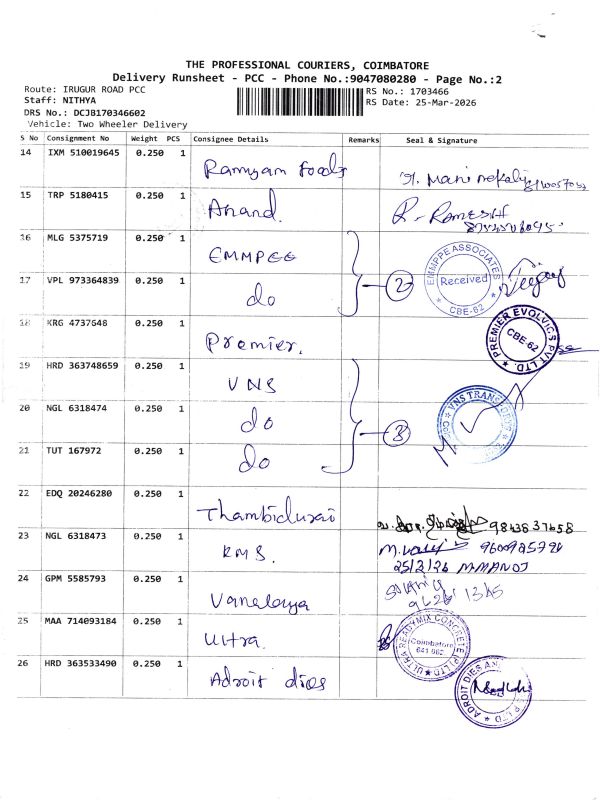 THE PROFESSIONAL COURIERS, COIMBATORE
Delivery Runsheet - PCC - Phone No.:9047080280 - Page No.:2
Route: IRUGUR ROAD PCC
Staff: NITHYA
DRS No.: DCJB170346602
Vehicle: Two Wheeler Delivery
RS No.: 1703466
RS Date: 25-Mar-2026
S No Consignment No Weight PCS Consignee Details Remarks Seal & Signature
14 IXM 510019645 0.250 1 Ramyam foods
15 TRP 5180415 0.250 1 Anand. R. RAMESH
16 MLG 5375719 0.250 1 EMMPEE
17 VPL 973364839 0.250 1 do 2
EMMPPE ASSOCIATES Received CBE-62
18 KRG 4737648 0.250 1 Premier.
PREMIER EVOLVICS PVT LTD. CBE-62
19 HRD 363748659 0.250 1 VNS
20 NGL 6318474 0.250 1 do 3
21 TUT 167972 0.250 1 do
22 EDQ 20246280 0.250 1 Thambidurai 9843837658
23 NGL 6318473 0.250 1 RMS.
M.MANOJ
24 GPM 5585793 0.250 1
25 MAA 714093184 0.250 1 Ultra.
ULTRA READYMIX CONCRETE (P) LTD Coimbatore
26 HRD 363533490 0.250 1 Adroit dies
ADROIT DIES AN P LTD